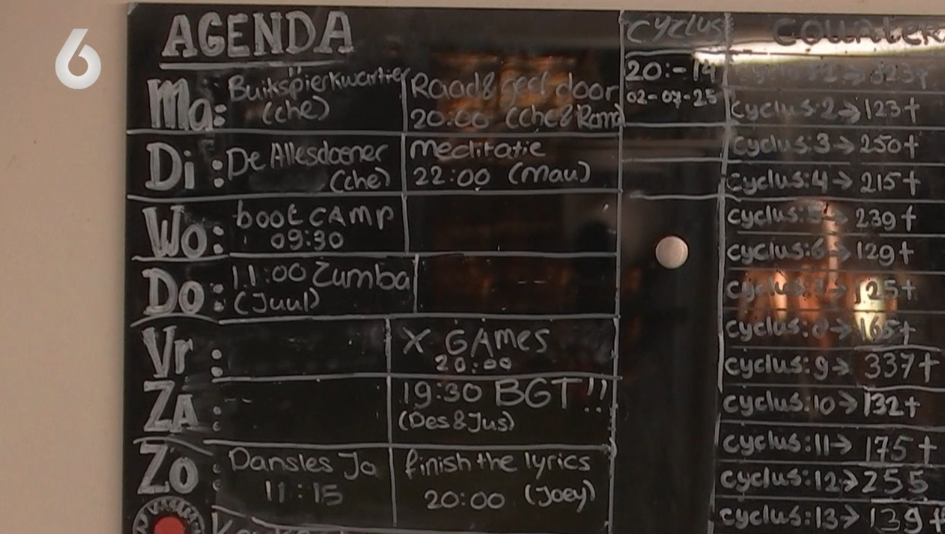 6
AGENDA
Ma: Buikspierkwartier
(Che)
Raad & geef door
20:00 (Che & Romy)
Di: De Allesdoener
(Che)
meditatie
22:00 (Mau)
Wo: bootcamp
09:30
Do: 11:00 Zumba
(Juul)
Vr:
X GAmes
20:00
ZA:
19:30 BGT!!
(Des&Jus)
Zo: Dansles Jo
11:15
finish the lyrics
20:00 (Joey)
cyclus
20:-14
02-07-25
counter
cyclus:2→123+
cyclus:3→250+
cyclus:4→215+
cyclus:5→239+
cyclus:6→129+
125+
cyclus:8→165+
cyclus:9→337+
cyclus:10→132+
cyclus:11→175+
cyclus:12→255
cyclus:13→139+